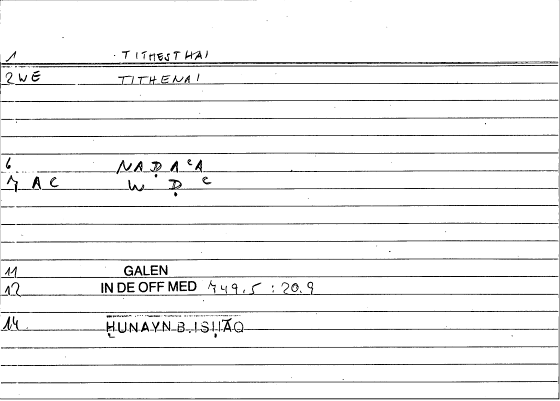 1 TITHESTHAI
2 WE TITHENAI
6 NAḌAʿA
7 AC W Ḍ C
11 GALEN
12 IN DE OFF MED 749.5 : 20.9
14 ḤUNAYN B. ISḤĀQ